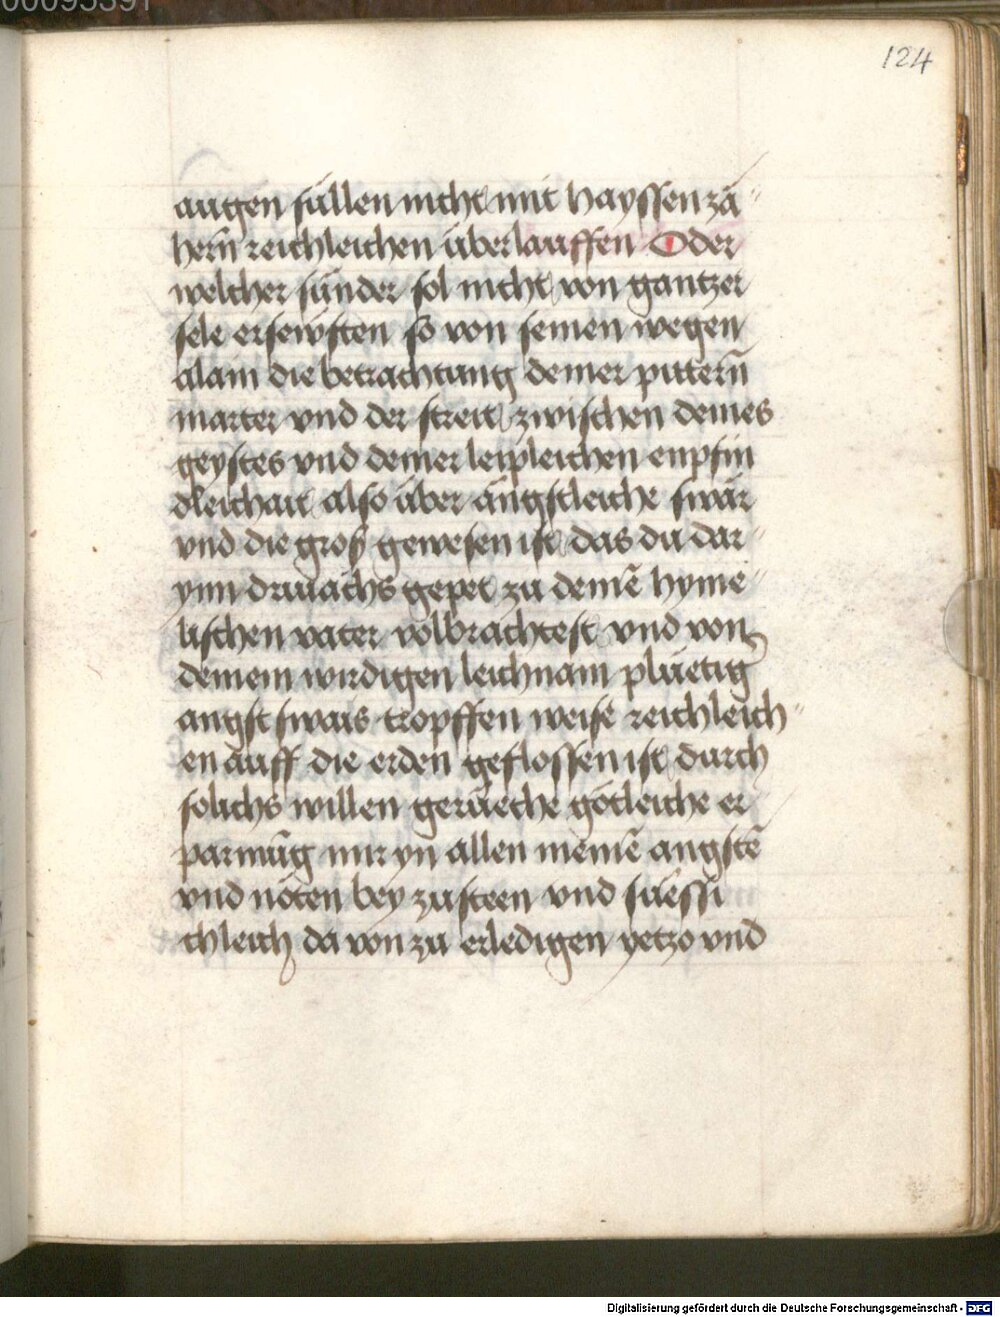 00095391
124
augen süllen nicht mit hayssen zä"
hern̄ reichleichen überlauffen Oder
welcher sünder sol nicht von gantzer
sele ersewften so von seinen wegen
alain die betrachtung deiner pittern̄
marter vnd der streit zwischen deines
geystes vnd deiner leipleichen enpfin
dleichait also über ängstleiche swär
vnd die gros gewesen ist das du dar"
ynn drivachs gepet zu deinē hyme"
lischen vater volbrachtest vnd von
deinem wirdigen leichnam plüetig
angst swais tropffen weise reichleich"
en auff die erden geflossen ist durch
solichs willen gerüeche götleiche er
parmūg mir yn allen meinē angstē
vnd nöten bey zusteen vnd süessi
chleich da von zu erledigen yetzo vnd
Digitalisierung gefördert durch die Deutsche Forschungsgemeinschaft - DFG